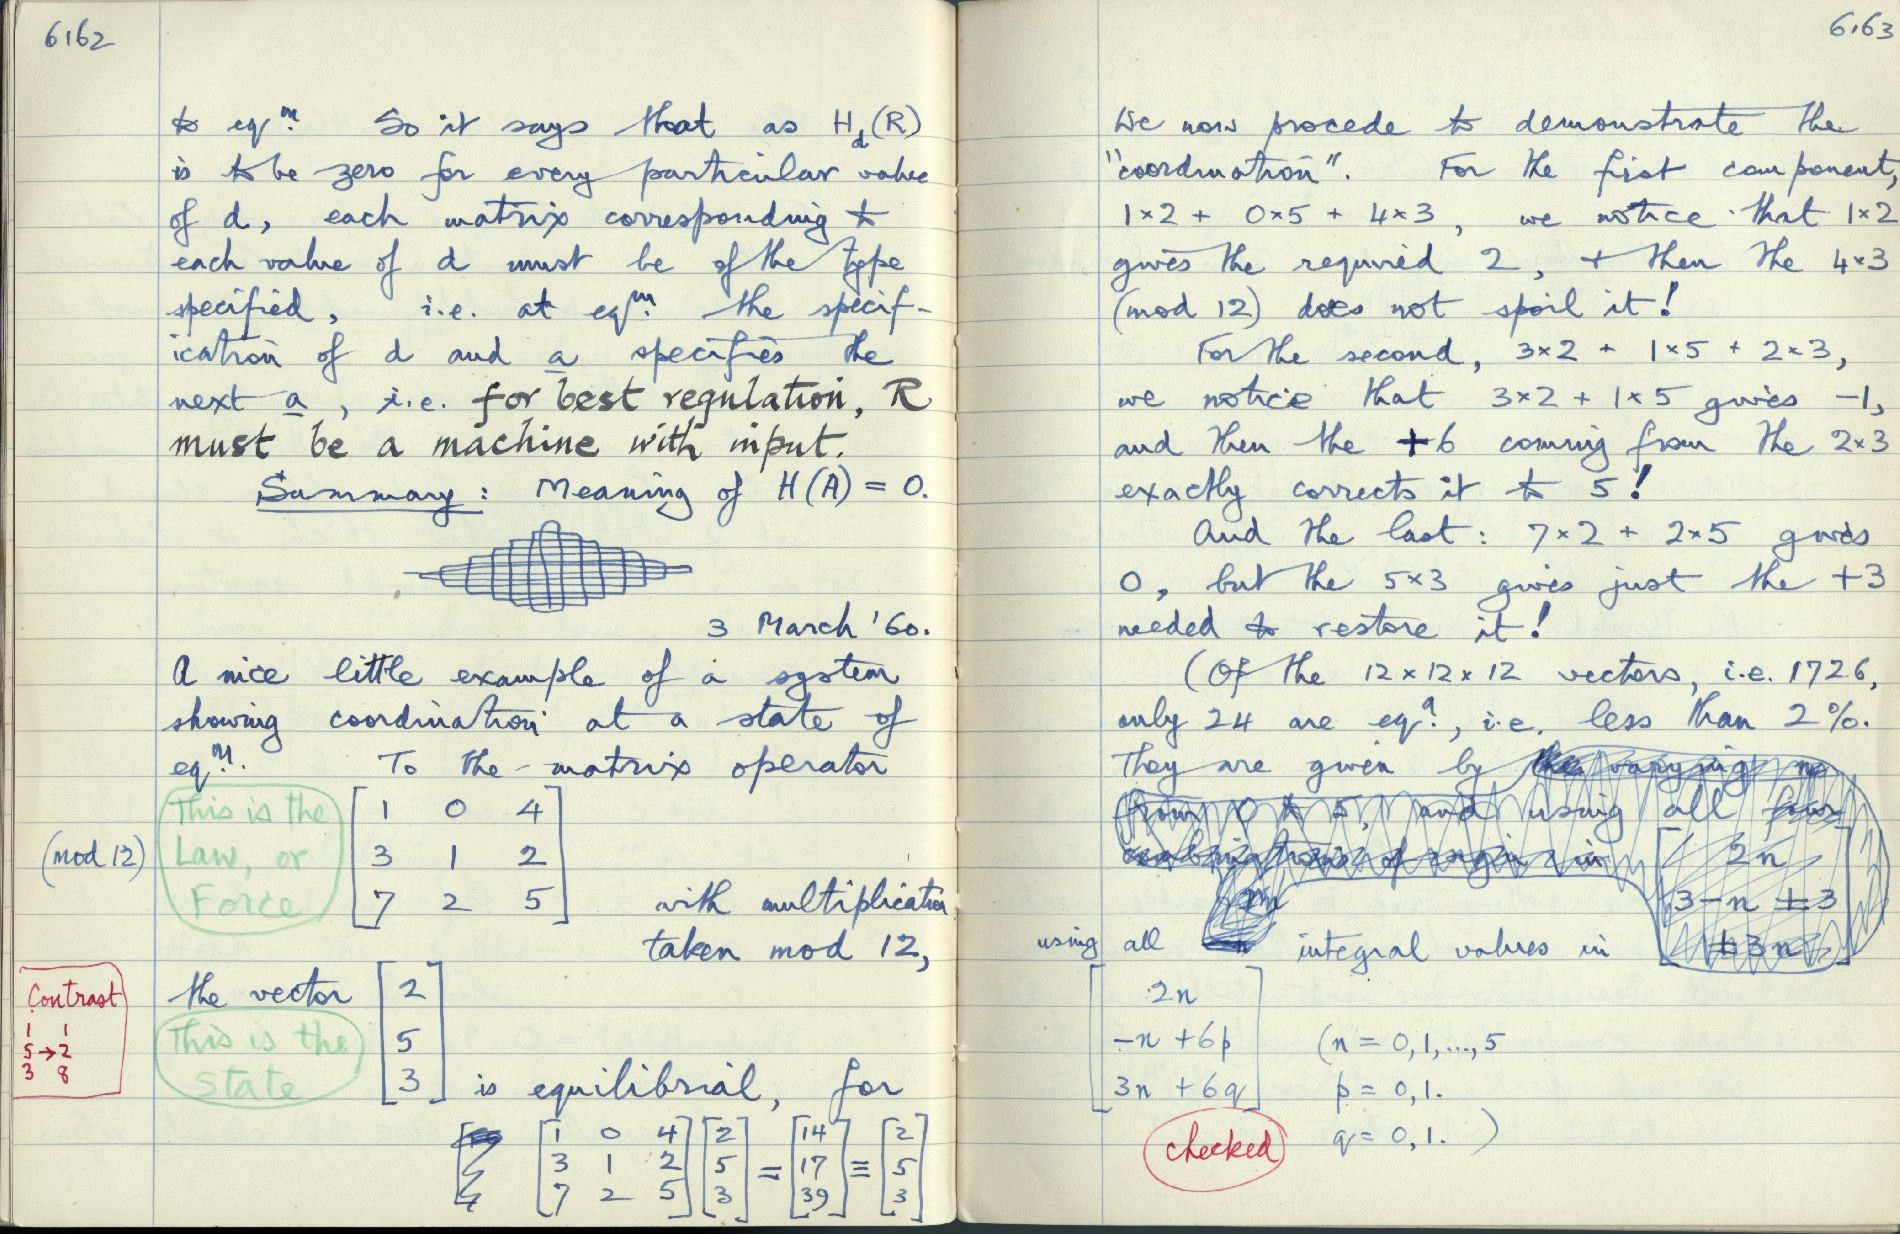 6162
to eqm. So it says that as Hd(R)
is to be zero for every particular value
of d, each matrix corresponding to
each value of d must be of the type
specified, i.e. at eqm. the specif-
ication of d and a specifies the
next a, i.e. for best regulation, R
must be a machine with input.
Summary: Meaning of H(A) = 0.
3 March '60.
A nice little example of a system
showing coordination at a state of
eqm. To the matrix operator
(mod 12)
This is the
Law, or
Force
1 0 4
3 1 2
7 2 5
with multiplication
taken mod 12,
Contrast
1 1
5 → 2
3 8
the vector
2
5
3
This is the
state
is equilibrial, for
[1 0 4] [2] [14] [2]
[3 1 2] [5] = [17] ≡ [5]
[7 2 5] [3] [39] [3]
6163
We now procede to demonstrate the
"coordination". For the first component,
1×2 + 0×5 + 4×3, we notice that 1×2
gives the required 2, + then the 4×3
(mod 12) does not spoil it!
For the second, 3×2 + 1×5 + 2×3,
we notice that 3×2 + 1×5 gives -1,
and then the +6 coming from the 2×3
exactly corrects it to 5!
And the last: 7×2 + 2×5 gives
0, but the 5×3 gives just the +3
needed to restore it!
(Of the 12×12×12 vectors, i.e. 1726,
only 24 are eql., i.e. less than 2%.
They are given by the varying n
from 0 to 5, and using all four
combinations of sign in
2n
3-n ±3
±3n
using all integral values in
2n
-n + 6p
3n + 6q
(n = 0,1,...,5
p = 0,1.
q = 0,1.)
checked